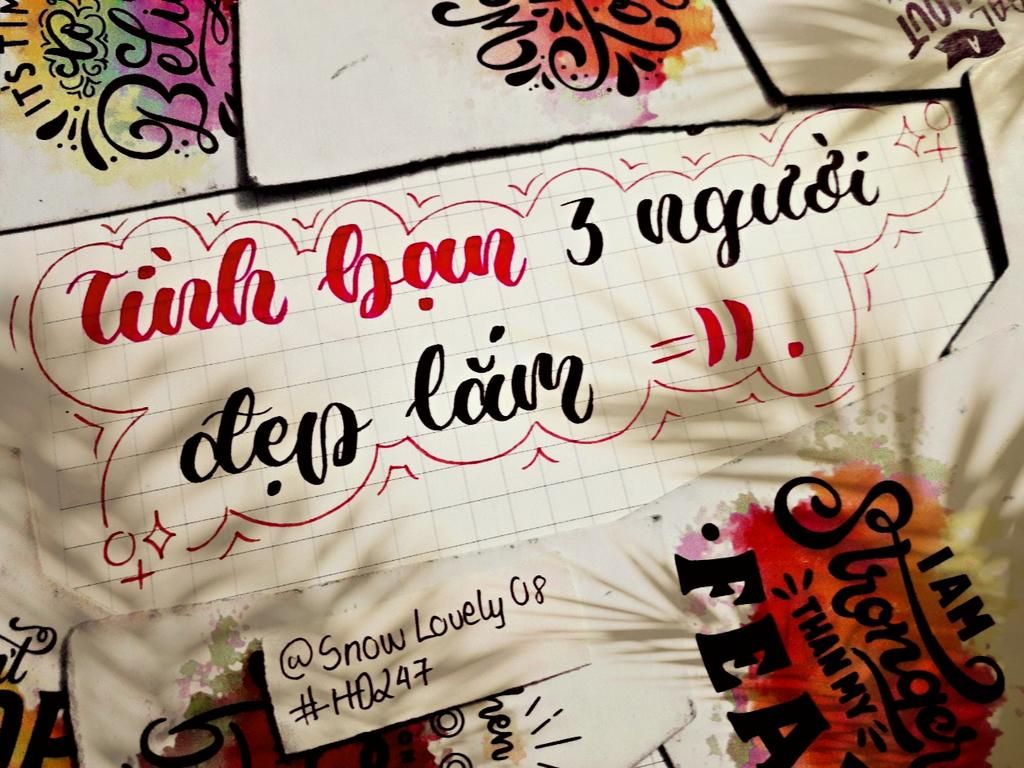 IT'S TIM
to
Beli
A
Tình bạn 3 người
đẹp lắm =)) .
@Snow Lovely 08
#HD247
I AM
Stronger
THAN MY
FEA